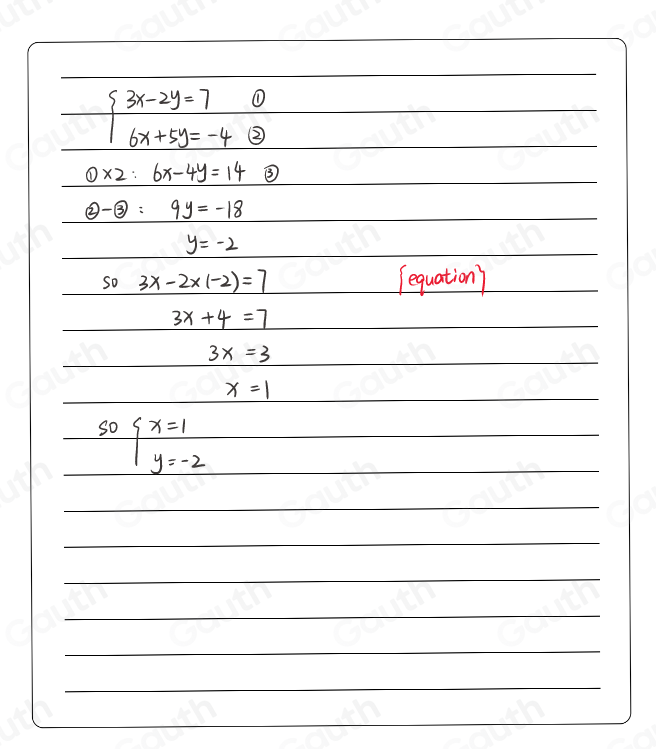 { 3x-2y=7 ①
6x+5y=-4 ②
①×2: 6x-4y=14 ③
②-③: 9y=-18
y=-2
so 3x-2×(-2)=7 {equation}
3x+4=7
3x=3
x=1
so { x=1
y=-2
Gauth